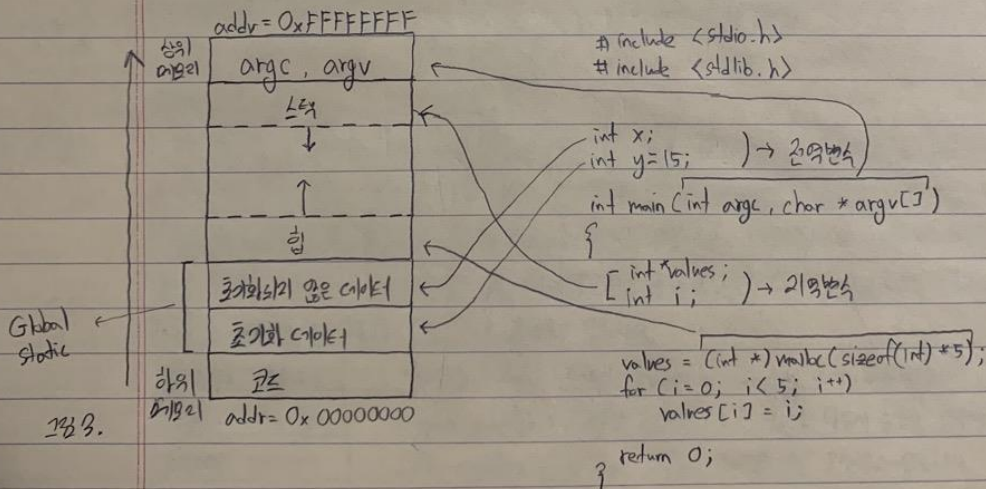 addr = 0xFFFFFFFF
상위
메모리
argc, argv
스택
힙
초기화되지 않은 데이터
초기화 데이터
코드
Global
static
하위
메모리
addr = 0x 00000000
그림 3.
# include <stdio.h>
# include <stdlib.h>
int x;
int y=15; ) → 전역변수
int main (int argc, char * argv[])
{
[ int *values;
int i; ) → 지역변수
values = (int *) malloc(sizeof(int) * 5);
for (i=0; i<5; i++)
values[i] = i;
return 0;
}